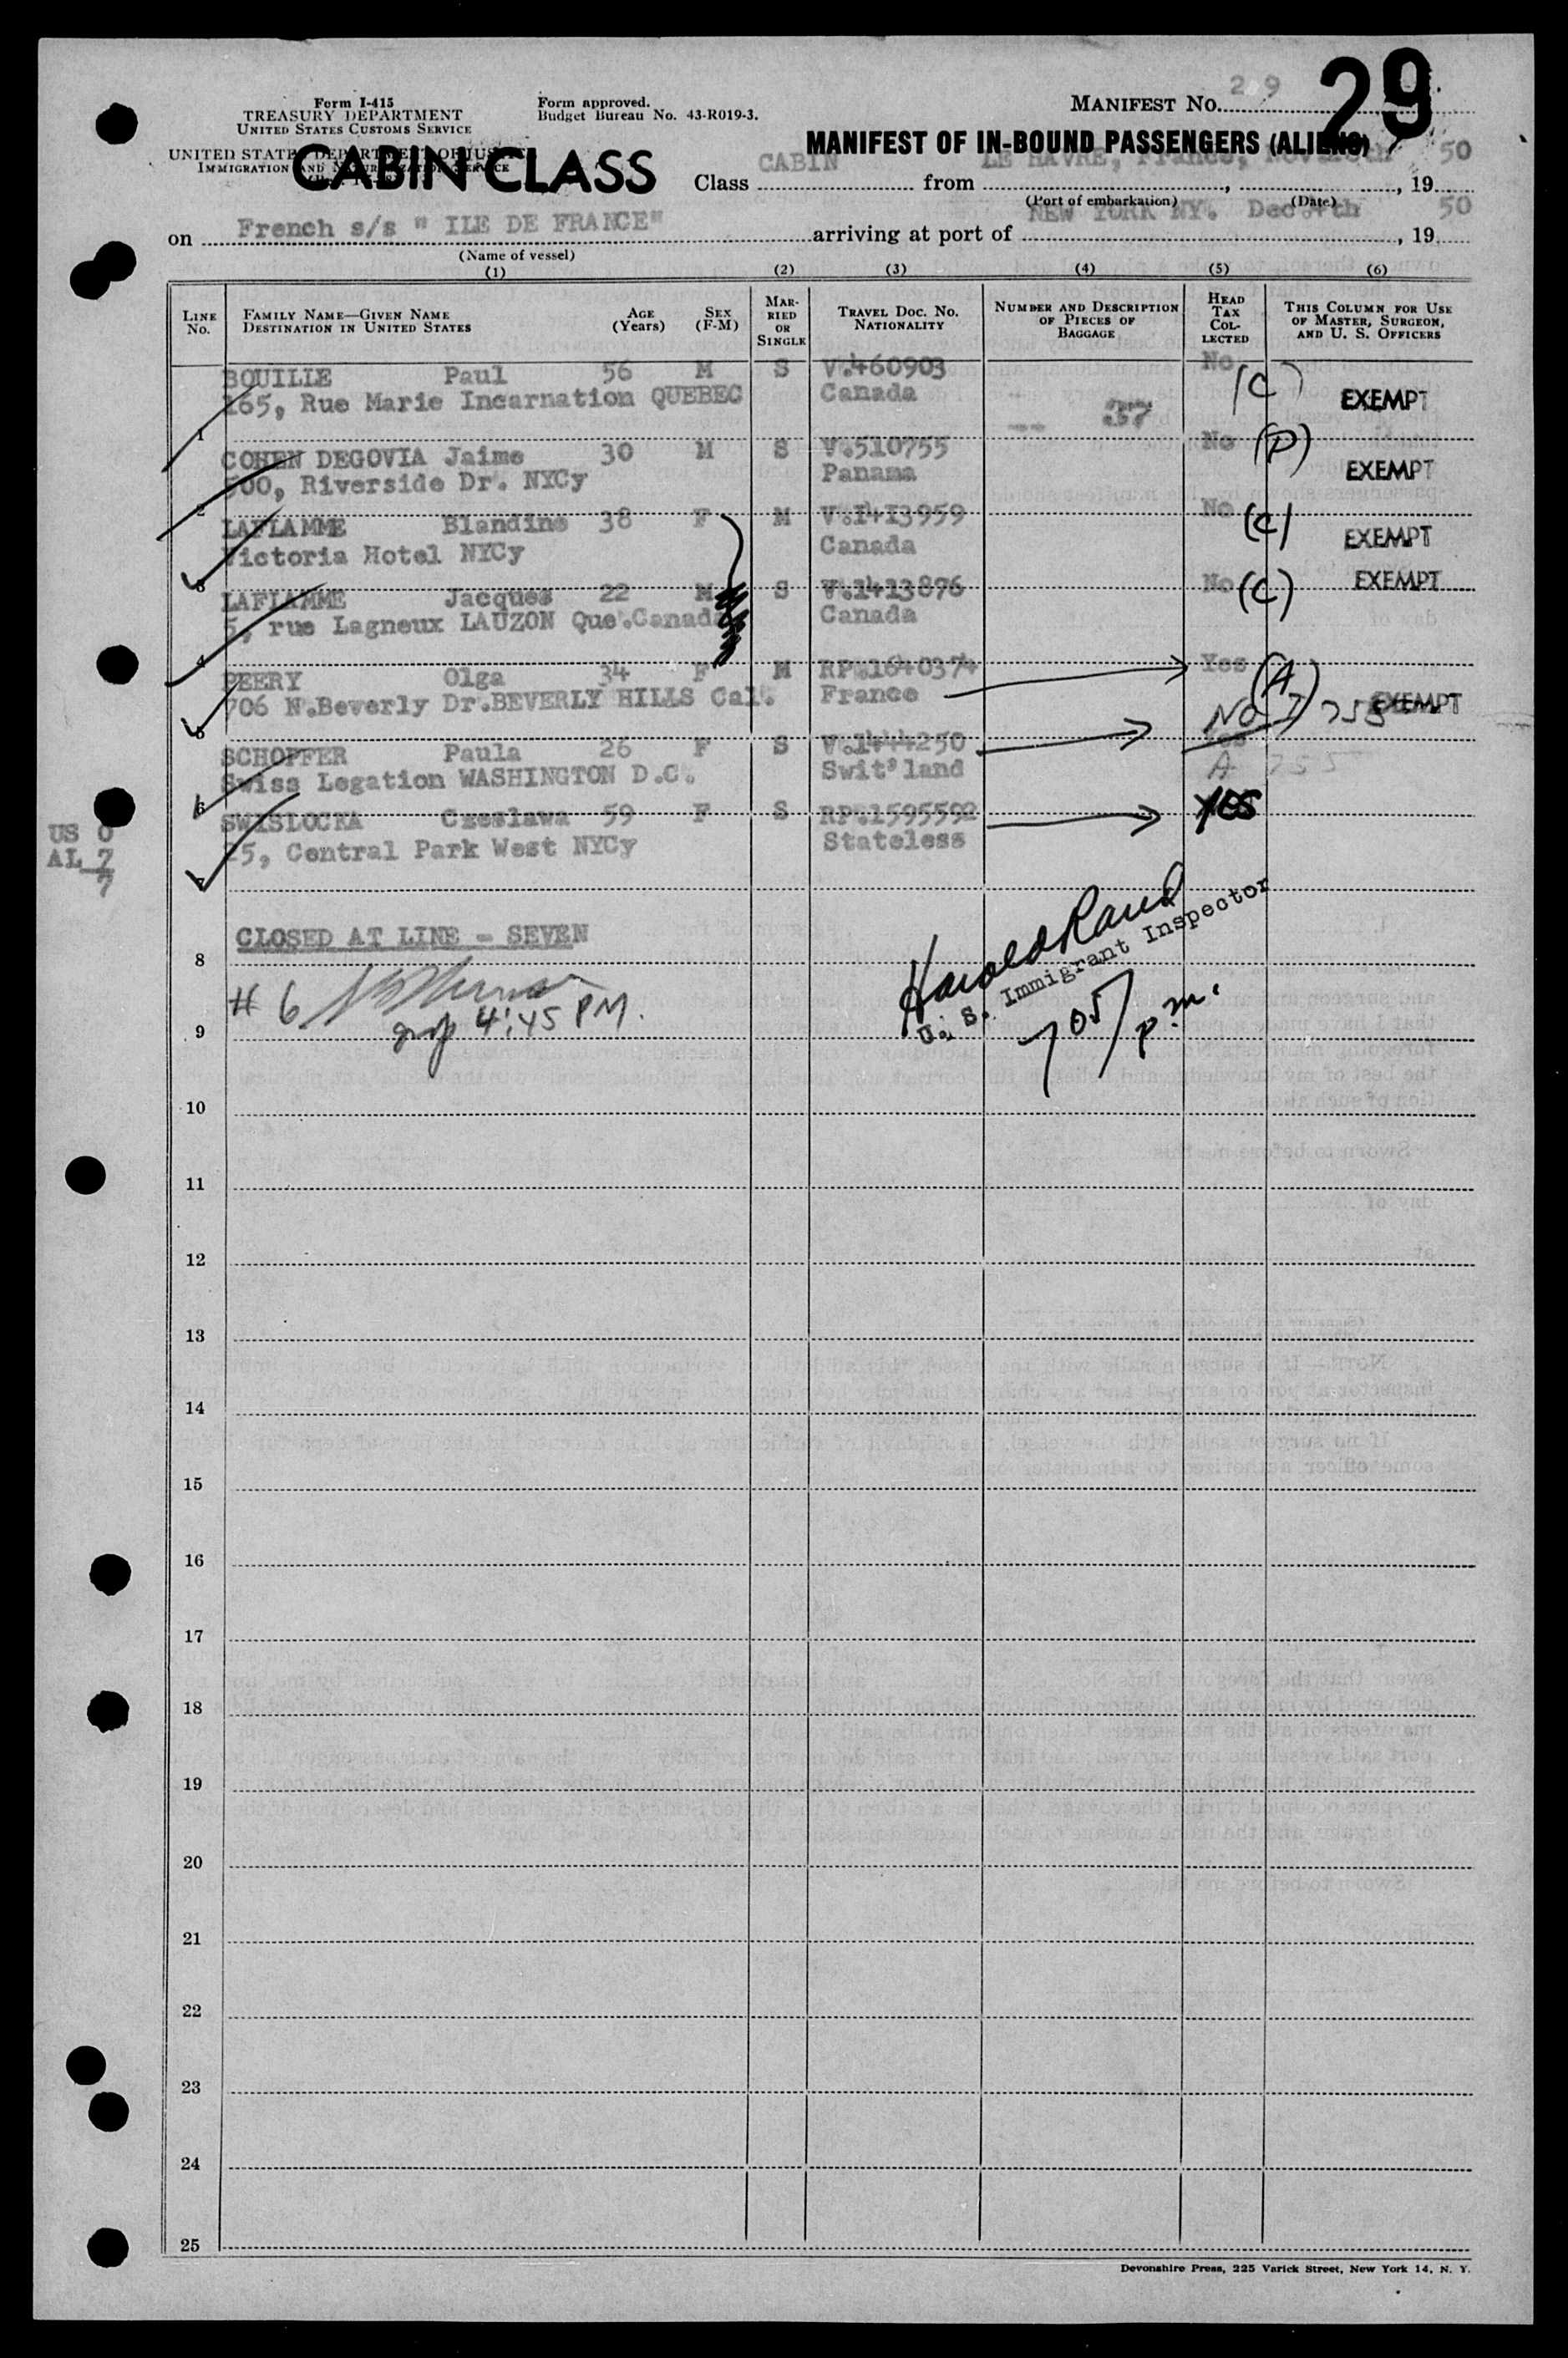 29
Form I-415
TREASURY DEPARTMENT
UNITED STATES CUSTOMS SERVICE
UNITED STATES DEPARTMENT OF JUSTICE
IMMIGRATION AND NATURALIZATION SERVICE
Form approved.
Budget Bureau No. 43-R019-3.
MANIFEST No. 29
CABIN CLASS
MANIFEST OF IN-BOUND PASSENGERS (ALIENS)
Class CABIN from LE HAVRE, France, , 19 50
(Port of embarkation) (Date)
on French s/s " ILE DE FRANCE" arriving at port of NEW YORK NY. Dec. 4th , 19 50
(Name of vessel)
(1) (2) (3) (4) (5) (6)
LINE No. FAMILY NAME—GIVEN NAME DESTINATION IN UNITED STATES AGE (Years) SEX (F-M) MARRIED OR SINGLE TRAVEL DOC. No. NATIONALITY NUMBER AND DESCRIPTION OF PIECES OF BAGGAGE HEAD TAX COLLECTED THIS COLUMN FOR USE OF MASTER, SURGEON, AND U. S. OFFICERS
BOUILLE Paul 56 M S V.460903 No (C)
165, Rue Marie Incarnation QUEBEC Canada -- 37 EXEMPT
1
COHEN DEGOVIA Jaime 30 M S V.510755 No (P)
500, Riverside Dr. NYCy Panama EXEMPT
2
LAFLAMME Blandine 38 F M V.1413959 No (C)
Victoria Hotel NYCy Canada EXEMPT
3
LAFLAMME Jacques 22 M S V.1413876 No (C) EXEMPT
5, rue Lagneux LAUZON Que.Canada Canada
4
PEERY Olga 34 F M RP.1640374 Yes (A)
706 N.Beverly Dr.BEVERLY HILLS Cal. France No EXEMPT
5
SCHOPFER Paula 26 F S V.1444250
Swiss Legation WASHINGTON D.C. Swit'land A
6
SWISLOCKA Czeslawa 59 F S RP.1595592 YES
25, Central Park West NYCy Stateless
7
US 0
AL 7
7
CLOSED AT LINE - SEVEN
8
# 6
4:45 PM.
Harold Rand
U. S. Immigrant Inspector
705 p.m.
9
10
11
12
13
14
15
16
17
18
19
20
21
22
23
24
25
Devonshire Press, 225 Varick Street, New York 14, N. Y.